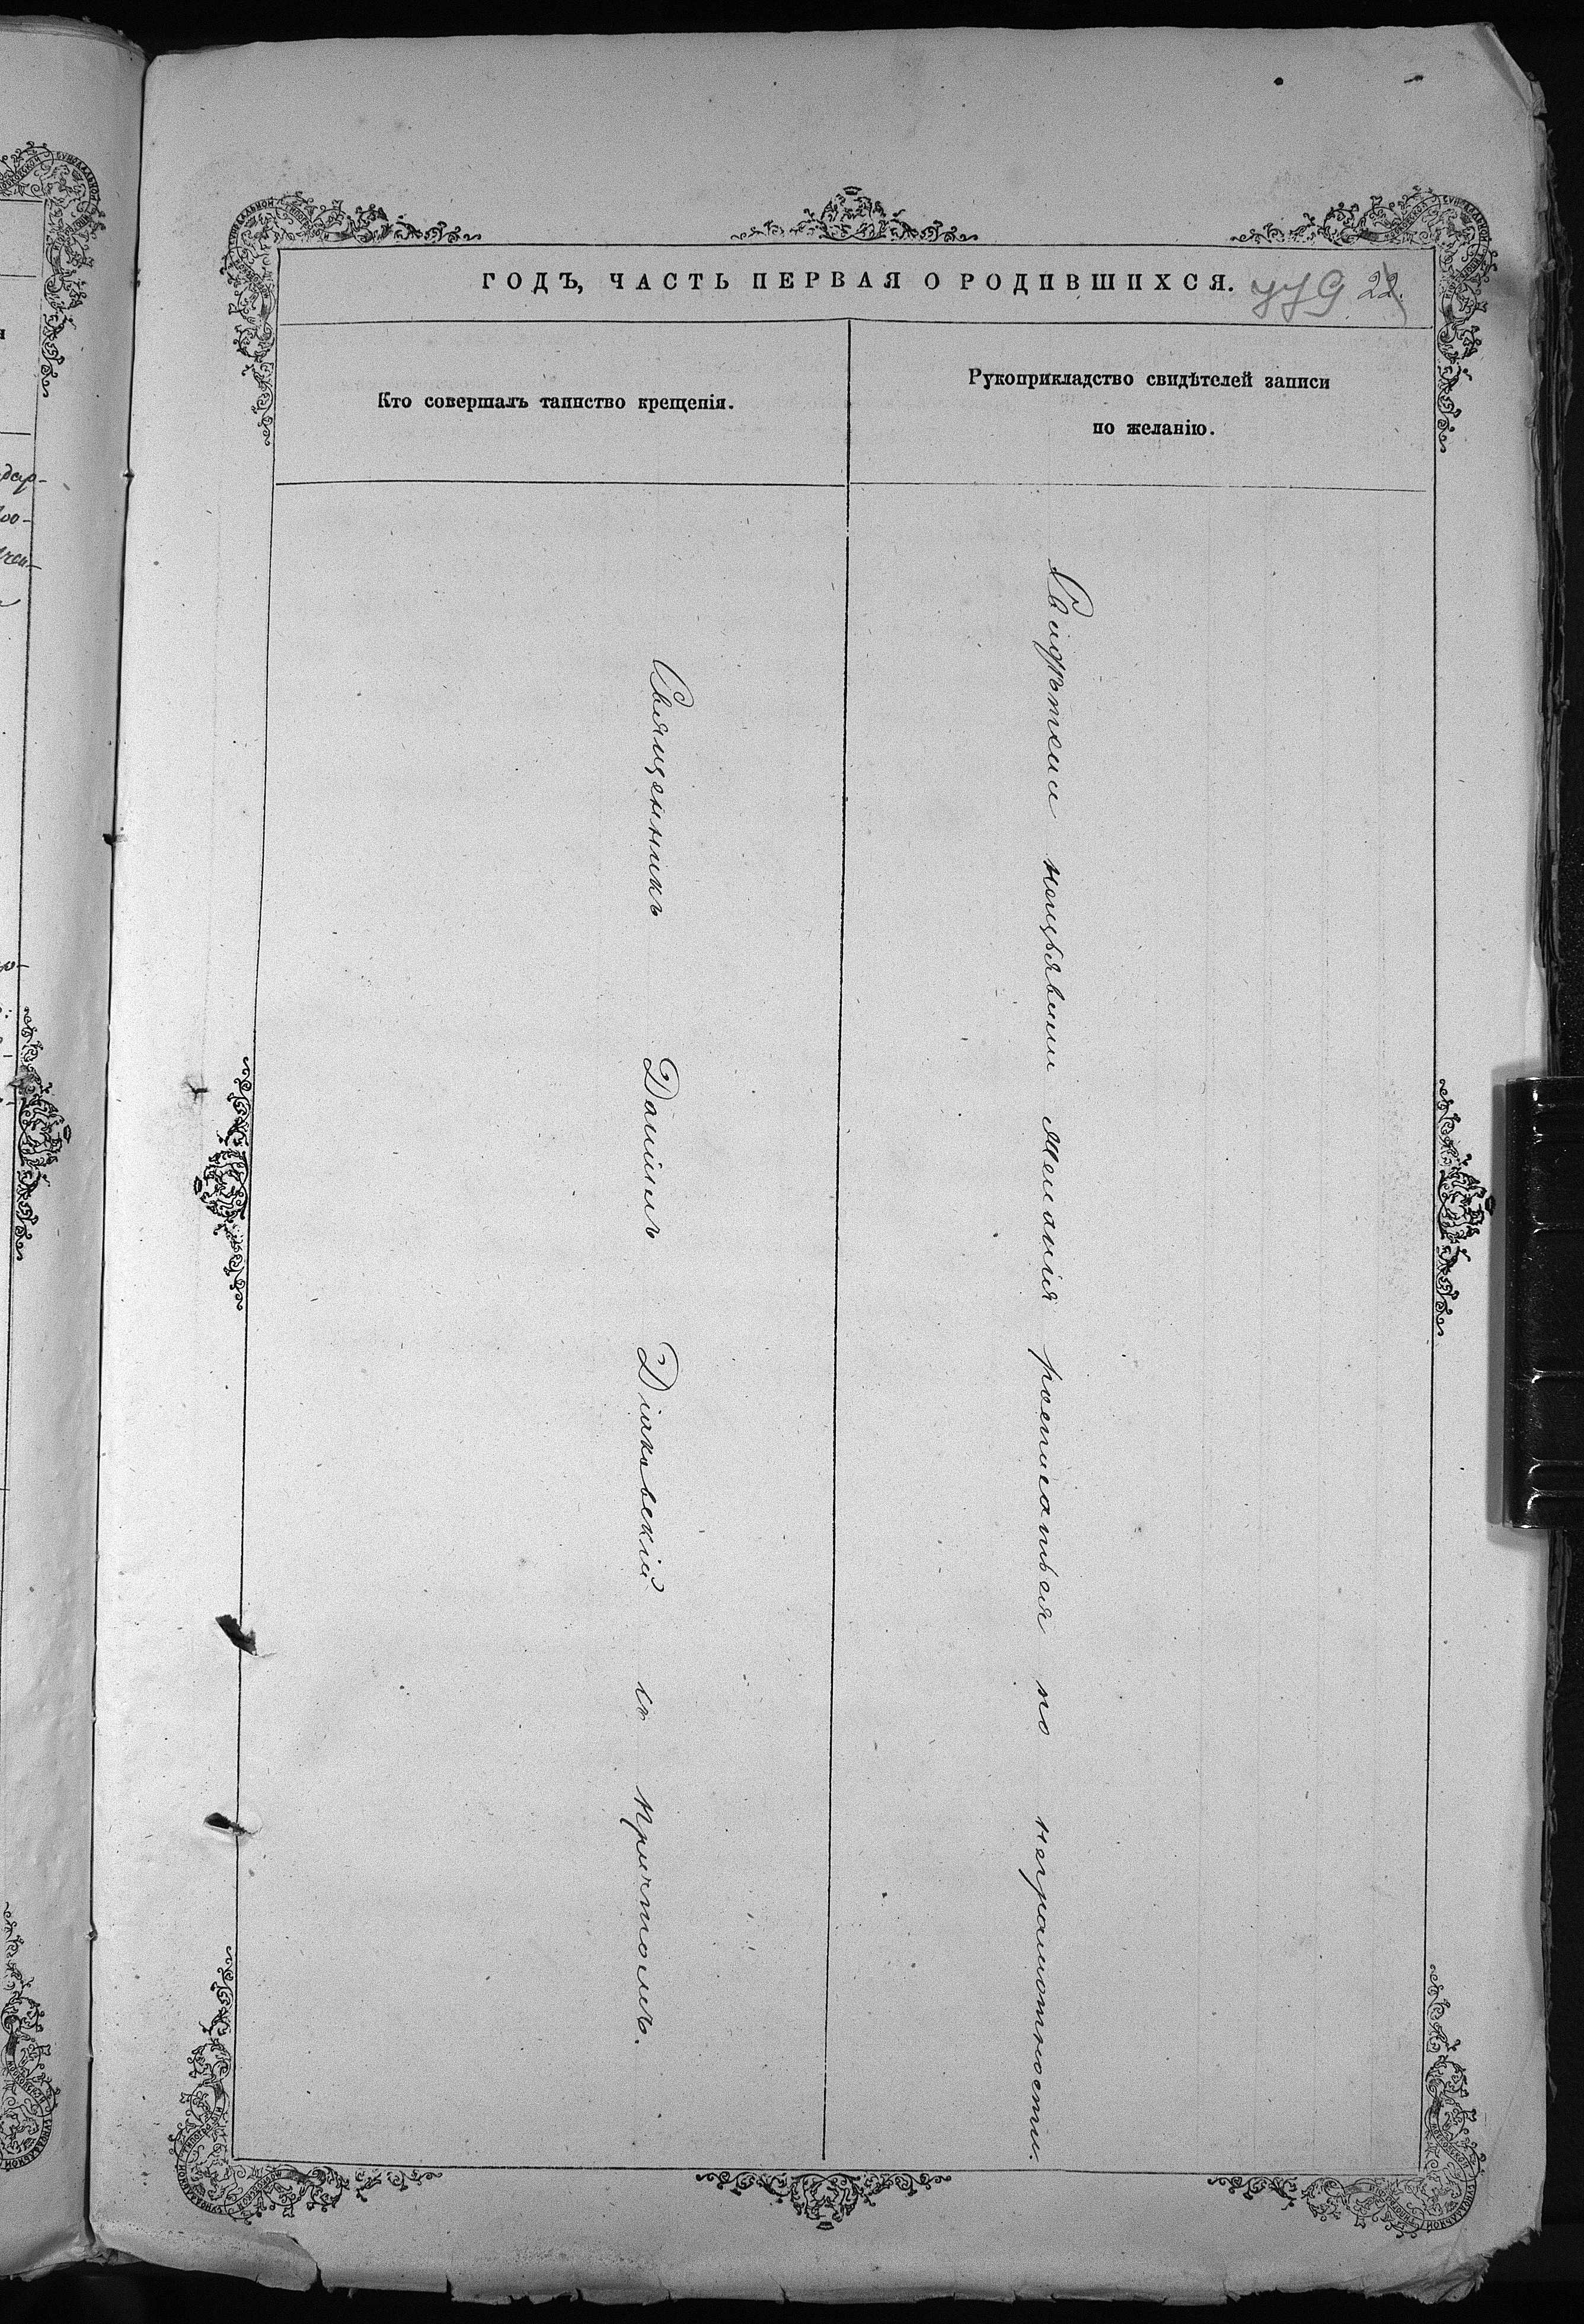 ГОДЪ, ЧАСТЬ ПЕРВАЯ О РОДИВШИХСЯ. 779 22.
Кто совершалъ таинство крещенія.
Рукоприкладство свидѣтелей записи
по желанію.
Священникъ Даніилъ Діаковскій съ причтомъ.
Свидѣтели неизъявили желанія росписаться по неграмотности.